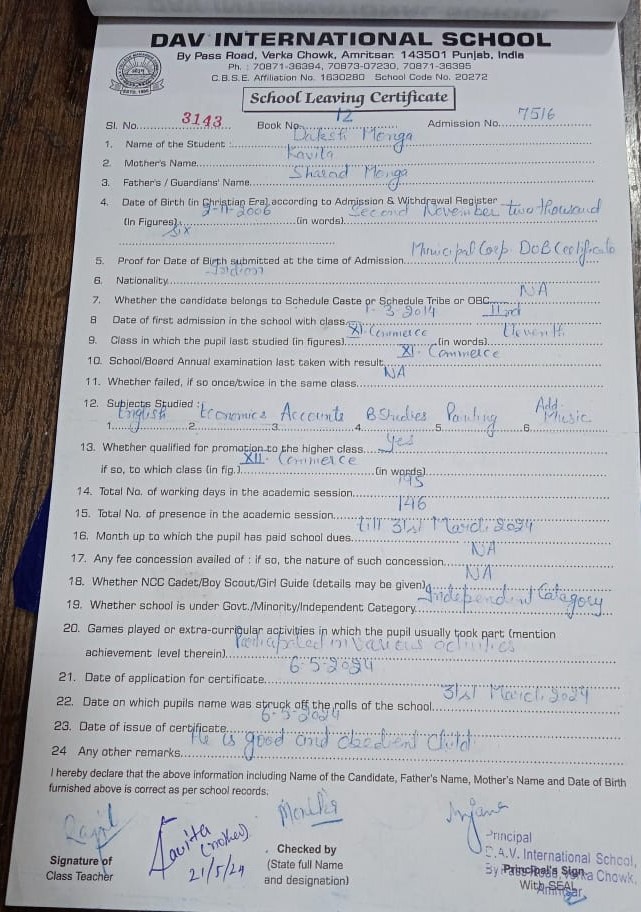 DAV INTERNATIONAL SCHOOL
By Pass Road, Verka Chowk, Amritsar. 143501 Punjab, India
Ph. : 70871-36394, 70873-07230, 70871-36395
C.B.S.E. Affiliation No. 1630280 School Code No. 20272
School Leaving Certificate
Sl. No. 3143 Book No. 12 Admission No. 7516
1. Name of the Student : Daksh Monga
2. Mother's Name Kavita
3. Father's / Guardians' Name Sharad Monga
4. Date of Birth (in Christian Era) according to Admission & Withdrawal Register
(In Figures) 2-11-2006 (in words) Second November two thousand
Six
5. Proof for Date of Birth submitted at the time of Admission Municipal Corp. DOB Certificate
6. Nationality Indian
7. Whether the candidate belongs to Schedule Caste or Schedule Tribe or OBC NA
8 Date of first admission in the school with class 1-3-2014 IInd
9. Class in which the pupil last studied (in figures) XI-Commerce (in words) Eleventh
10. School/Board Annual examination last taken with result XI-Commerce
11. Whether failed, if so once/twice in the same class NA
12. Subjects Studied :
1. English 2. Economics 3. Accounts 4. B Studies 5. Painting 6. Add. Music
13. Whether qualified for promotion to the higher class Yes
if so, to which class (in fig.) XII-Commerce (in words)
14. Total No. of working days in the academic session 195
15. Total No. of presence in the academic session 146
16. Month up to which the pupil has paid school dues till 31st March 2024
17. Any fee concession availed of : if so, the nature of such concession NA
18. Whether NCC Cadet/Boy Scout/Girl Guide (details may be given) NA
19. Whether school is under Govt./Minority/Independent Category Independent Category
20. Games played or extra-curricular activities in which the pupil usually took part (mention
achievement level therein) Participated in various activities
21. Date of application for certificate 6-5-2024
22. Date on which pupils name was struck off the rolls of the school 31st March 2024
23. Date of issue of certificate 6-5-2024
24 Any other remarks He is good and obedient child
I hereby declare that the above information including Name of the Candidate, Father's Name, Mother's Name and Date of Birth
furnished above is correct as per school records.
Kavita (mother)
21/5/24
Signature of
Class Teacher
Checked by
(State full Name
and designation)
Principal
D.A.V. International School,
Principal's Sign
With SEAL
Amritsar